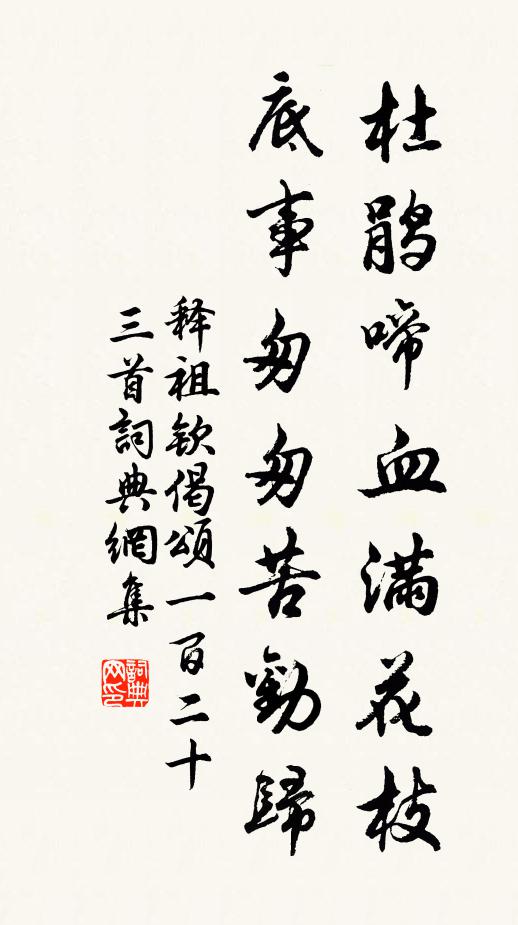 杜鹃啼血满花枝
底事匆匆苦勸歸
释祖欽偈頌一百二十
三首詞典網集
詞典网印